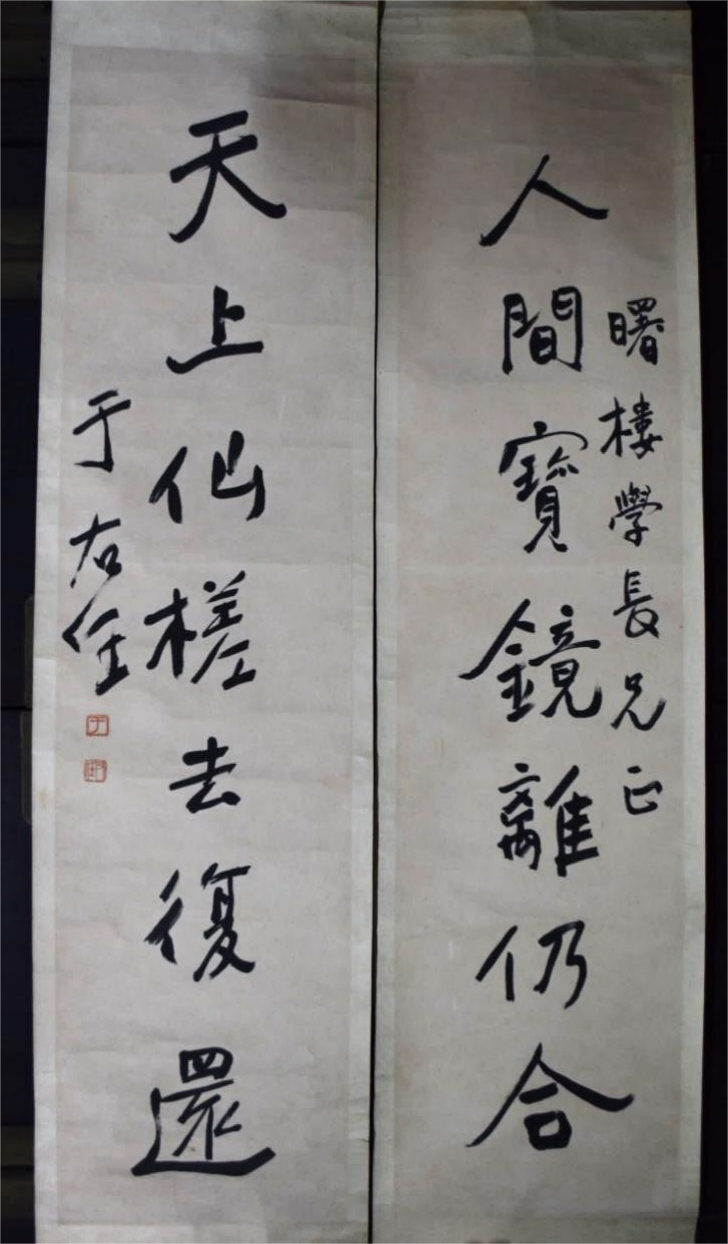 曙樓學長兄正
人間寶鏡離仍合
天上仙槎去復還
于右任